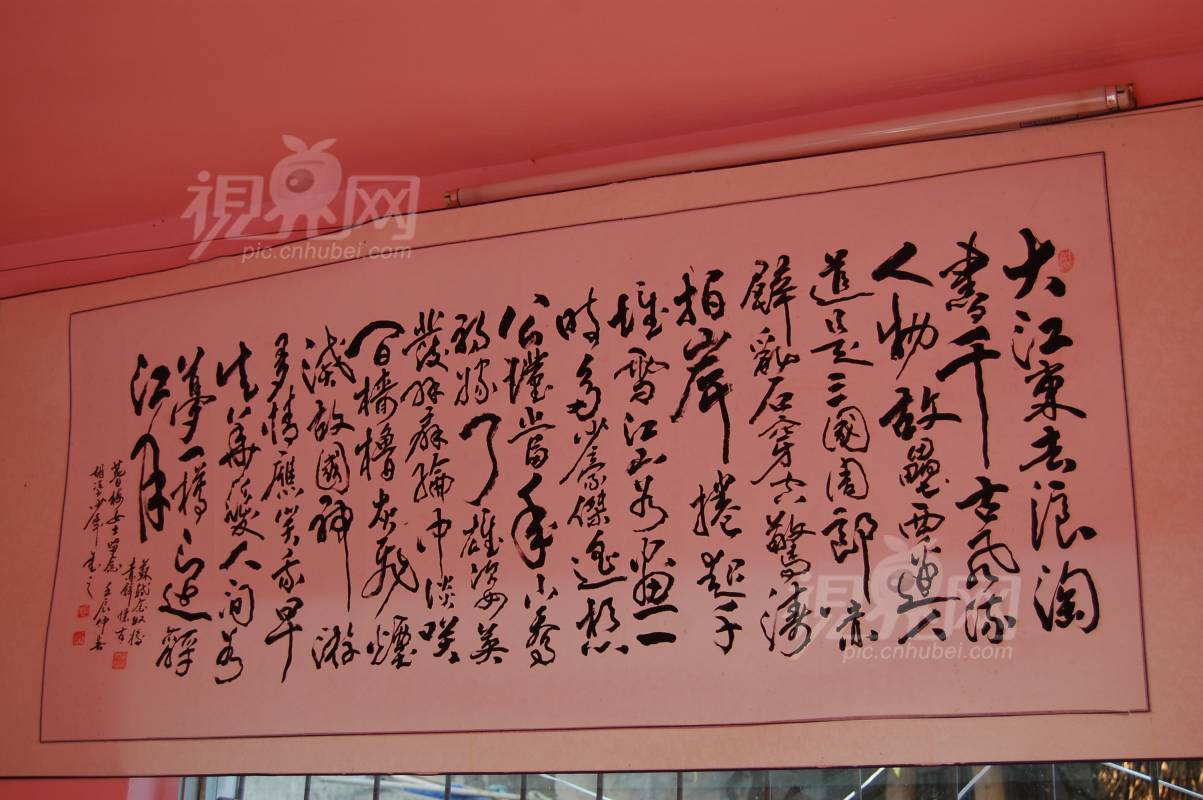 大江東去浪淘
盡千古風流
人物故壘西邊人
道是三國周郎赤
壁亂石穿空驚濤
拍岸捲起千
堆雪江山如畫一
時多少豪傑遙想
公瑾當年小喬
初嫁了雄姿英
發羽扇綸巾談笑
間檣櫓灰飛煙
滅故國神遊
多情應笑我早
生華髮人間如
夢一樽還酹
江月
蘇軾念奴嬌
赤壁懷古
女士 壬辰仲春
書之
視界网
pic.cnhubei.com
視界网
pic.cnhubei.com